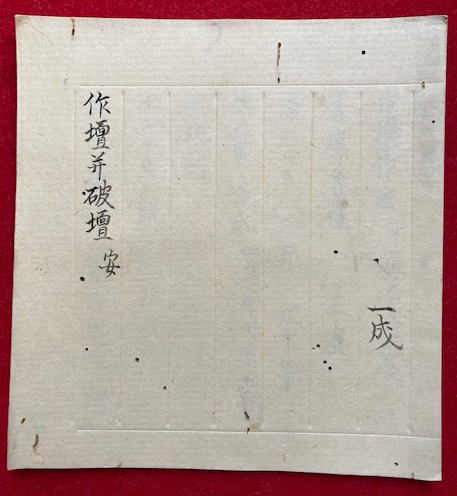 作壇并破壇 安
一成